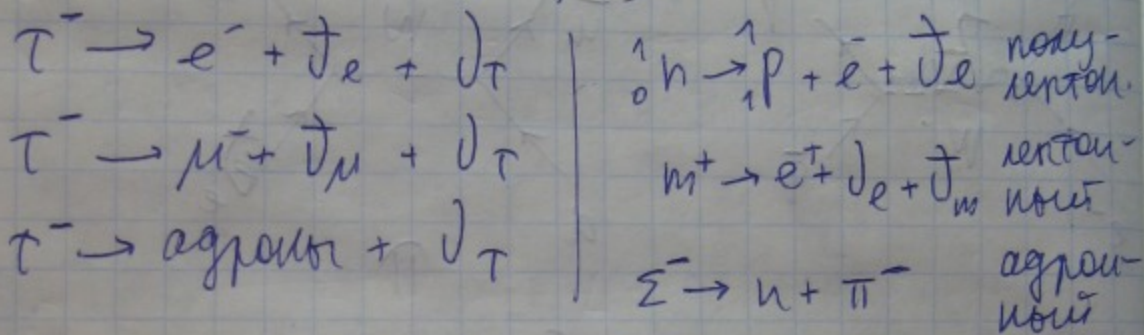 τ⁻ → e⁻ + ν̄e + ντ
τ⁻ → μ⁻ + ν̄μ + ντ
τ⁻ → адроны + ντ
¹₀n → ¹₁p + e⁻ + ν̄e полу-
лептон.
m⁺ → e⁺ + νe + ν̄m лептон-
ный
Σ⁻ → n + π⁻ адрон-
ный